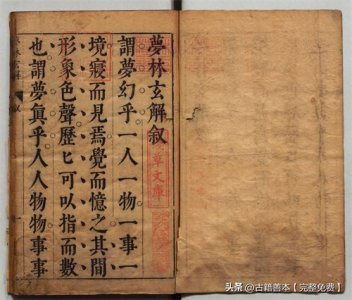 夢林玄解叙
謂夢幻乎一人一物一事一
境寢而見焉覺而憶之其間
形象色聲歷匕可㕥指而數
也謂夢眞乎人人物物事事
章文庫
头条 @古籍善本【完整免费】